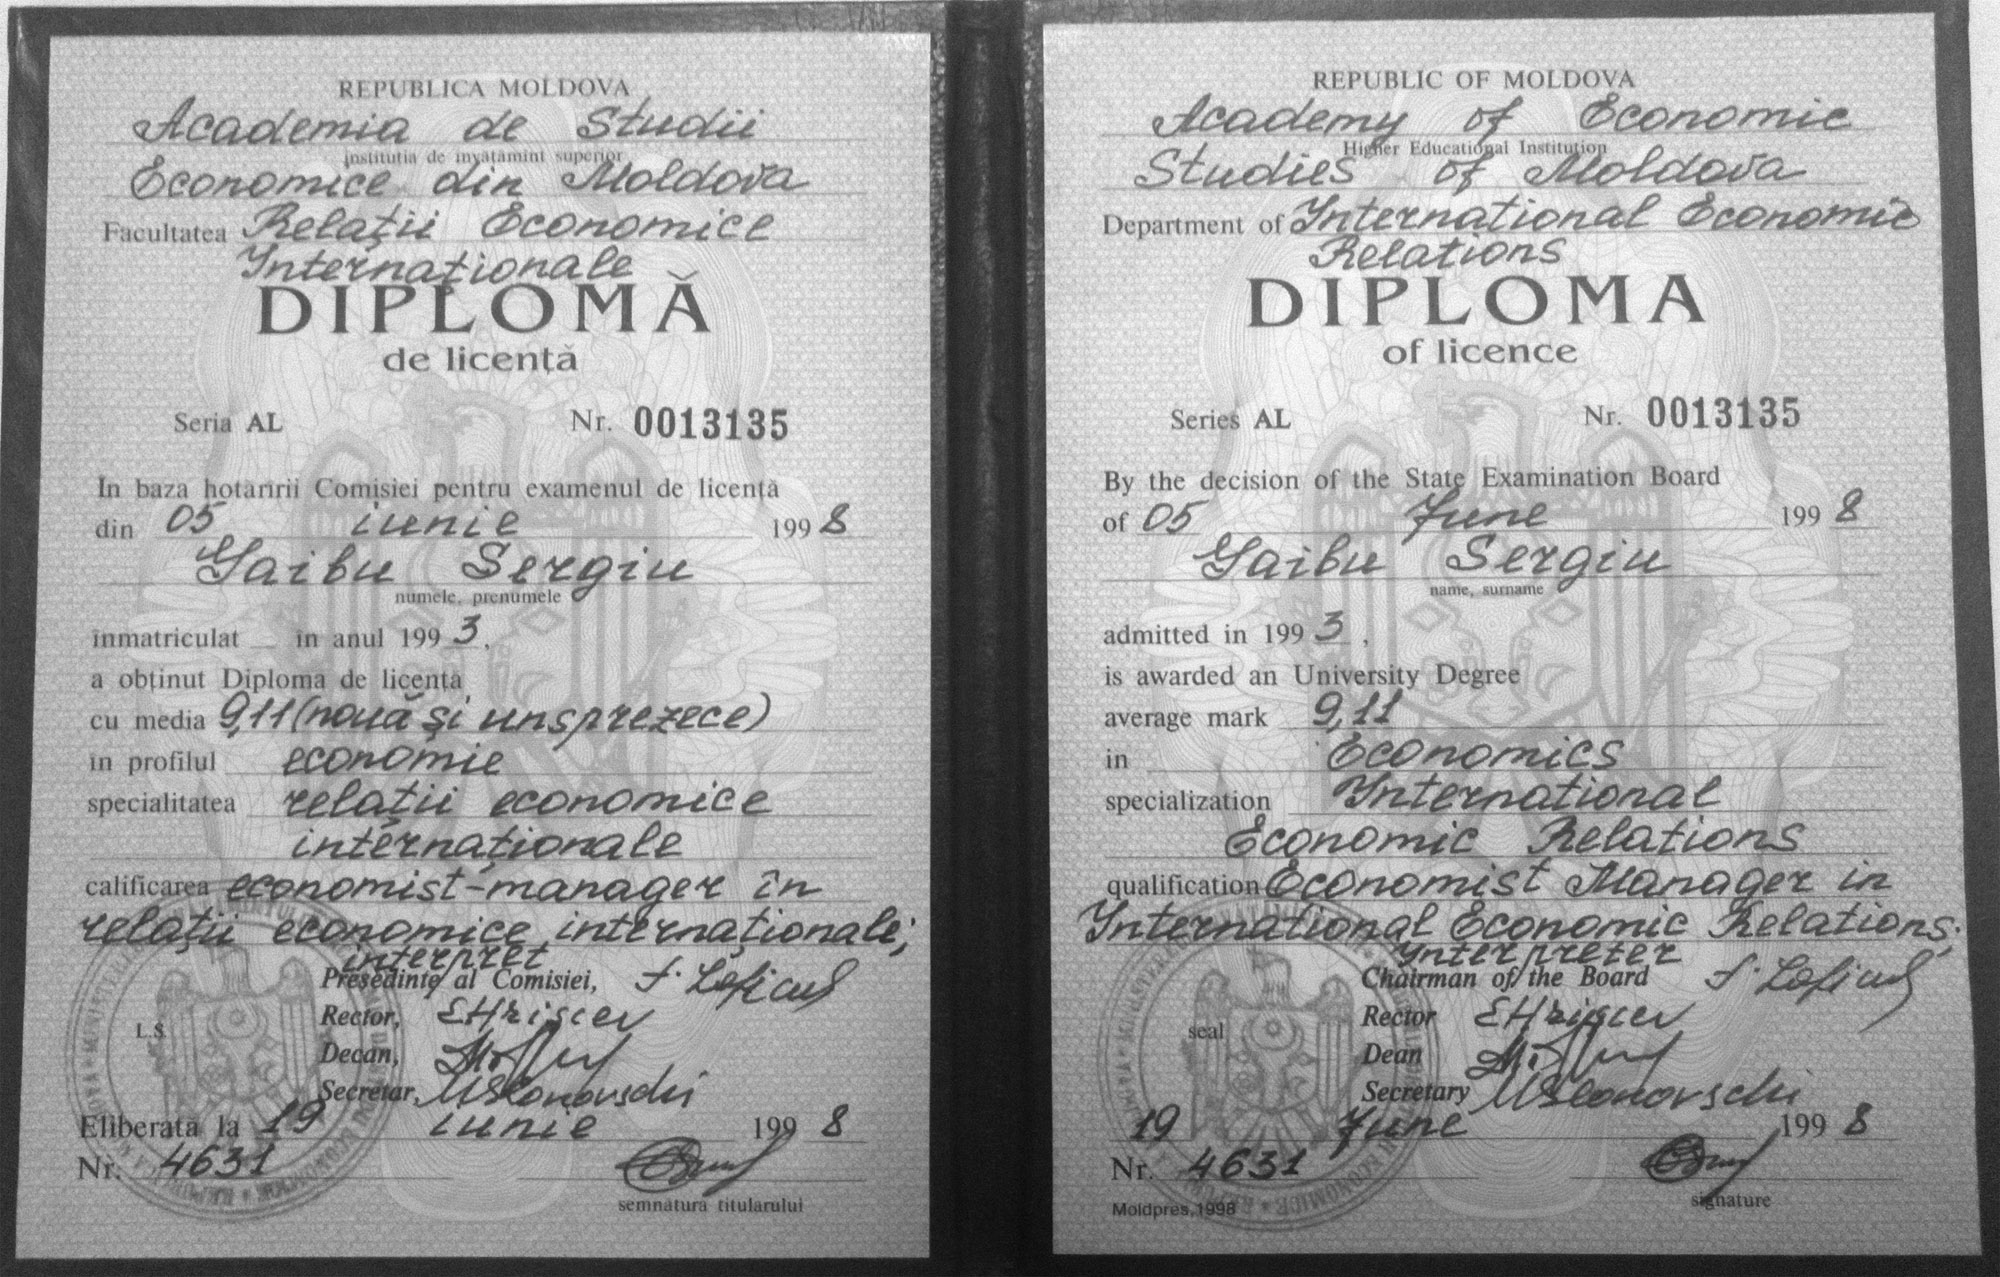 REPUBLICA MOLDOVA
Academia de Studii
instituția de învățămînt superior
Economice din Moldova
Facultatea Relații Economice
Internaționale
DIPLOMĂ
de licență
Seria AL Nr. 0013135
În baza hotărîrii Comisiei pentru examenul de licență
din 05 iunie 1998
Gaibu Sergiu
numele, prenumele
înmatriculat în anul 1993,
a obținut Diploma de licență
cu media 9,11 (nouă și unsprezece)
în profilul economie
specialitatea relații economice
internaționale
calificarea economist-manager în
relații economice internaționale;
interpret
Președinte al Comisiei,
Rector,
Decan,
Secretar,
L.S
Eliberată la 19 iunie 1998
Nr. 4631
semnătura titularului
REPUBLIC OF MOLDOVA
Academy of Economic
Higher Educational Institution
Studies of Moldova
Department of International Economic
Relations
DIPLOMA
of licence
Series AL Nr. 0013135
By the decision of the State Examination Board
of 05 June 1998
Gaibu Sergiu
name, surname
admitted in 1993,
is awarded an University Degree
average mark 9,11
in Economics
specialization International
Economic Relations
qualification Economist Manager in
International Economic Relations;
Interpreter
Chairman of the Board
Rector
Dean
Secretary
seal
19 June 1998
Nr. 4631
signature
Moldpres, 1998